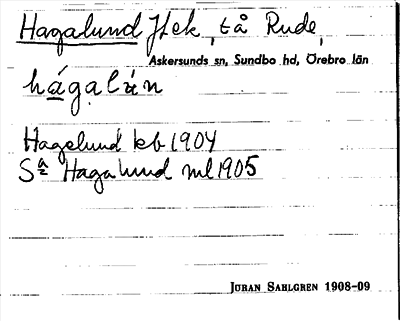 Hagalund Htek, tå Rude,
Askersunds sn, Sundbo hd, Örebro län
hágalún
Hagelund kb 1904
Sa Hagalund ml 1905
JÖRAN SAHLGREN 1908-09